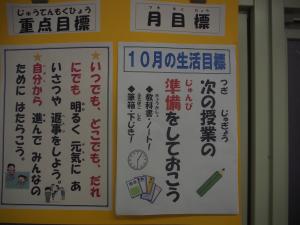 じゅうてんもくひょう
重点目標
★いつでも、どこでも、だれ
にでも 明るく 元気に あ
いさつや 返事をしよう。
★自分から 進んで みんなの
ために はたらこう。
つきもくひょう
月目標
10月の生活目標
つぎ じゅぎょう
次の授業の
じゅんび
準備をしておこう
◆教科書・ノート!
◆筆箱・下じき!